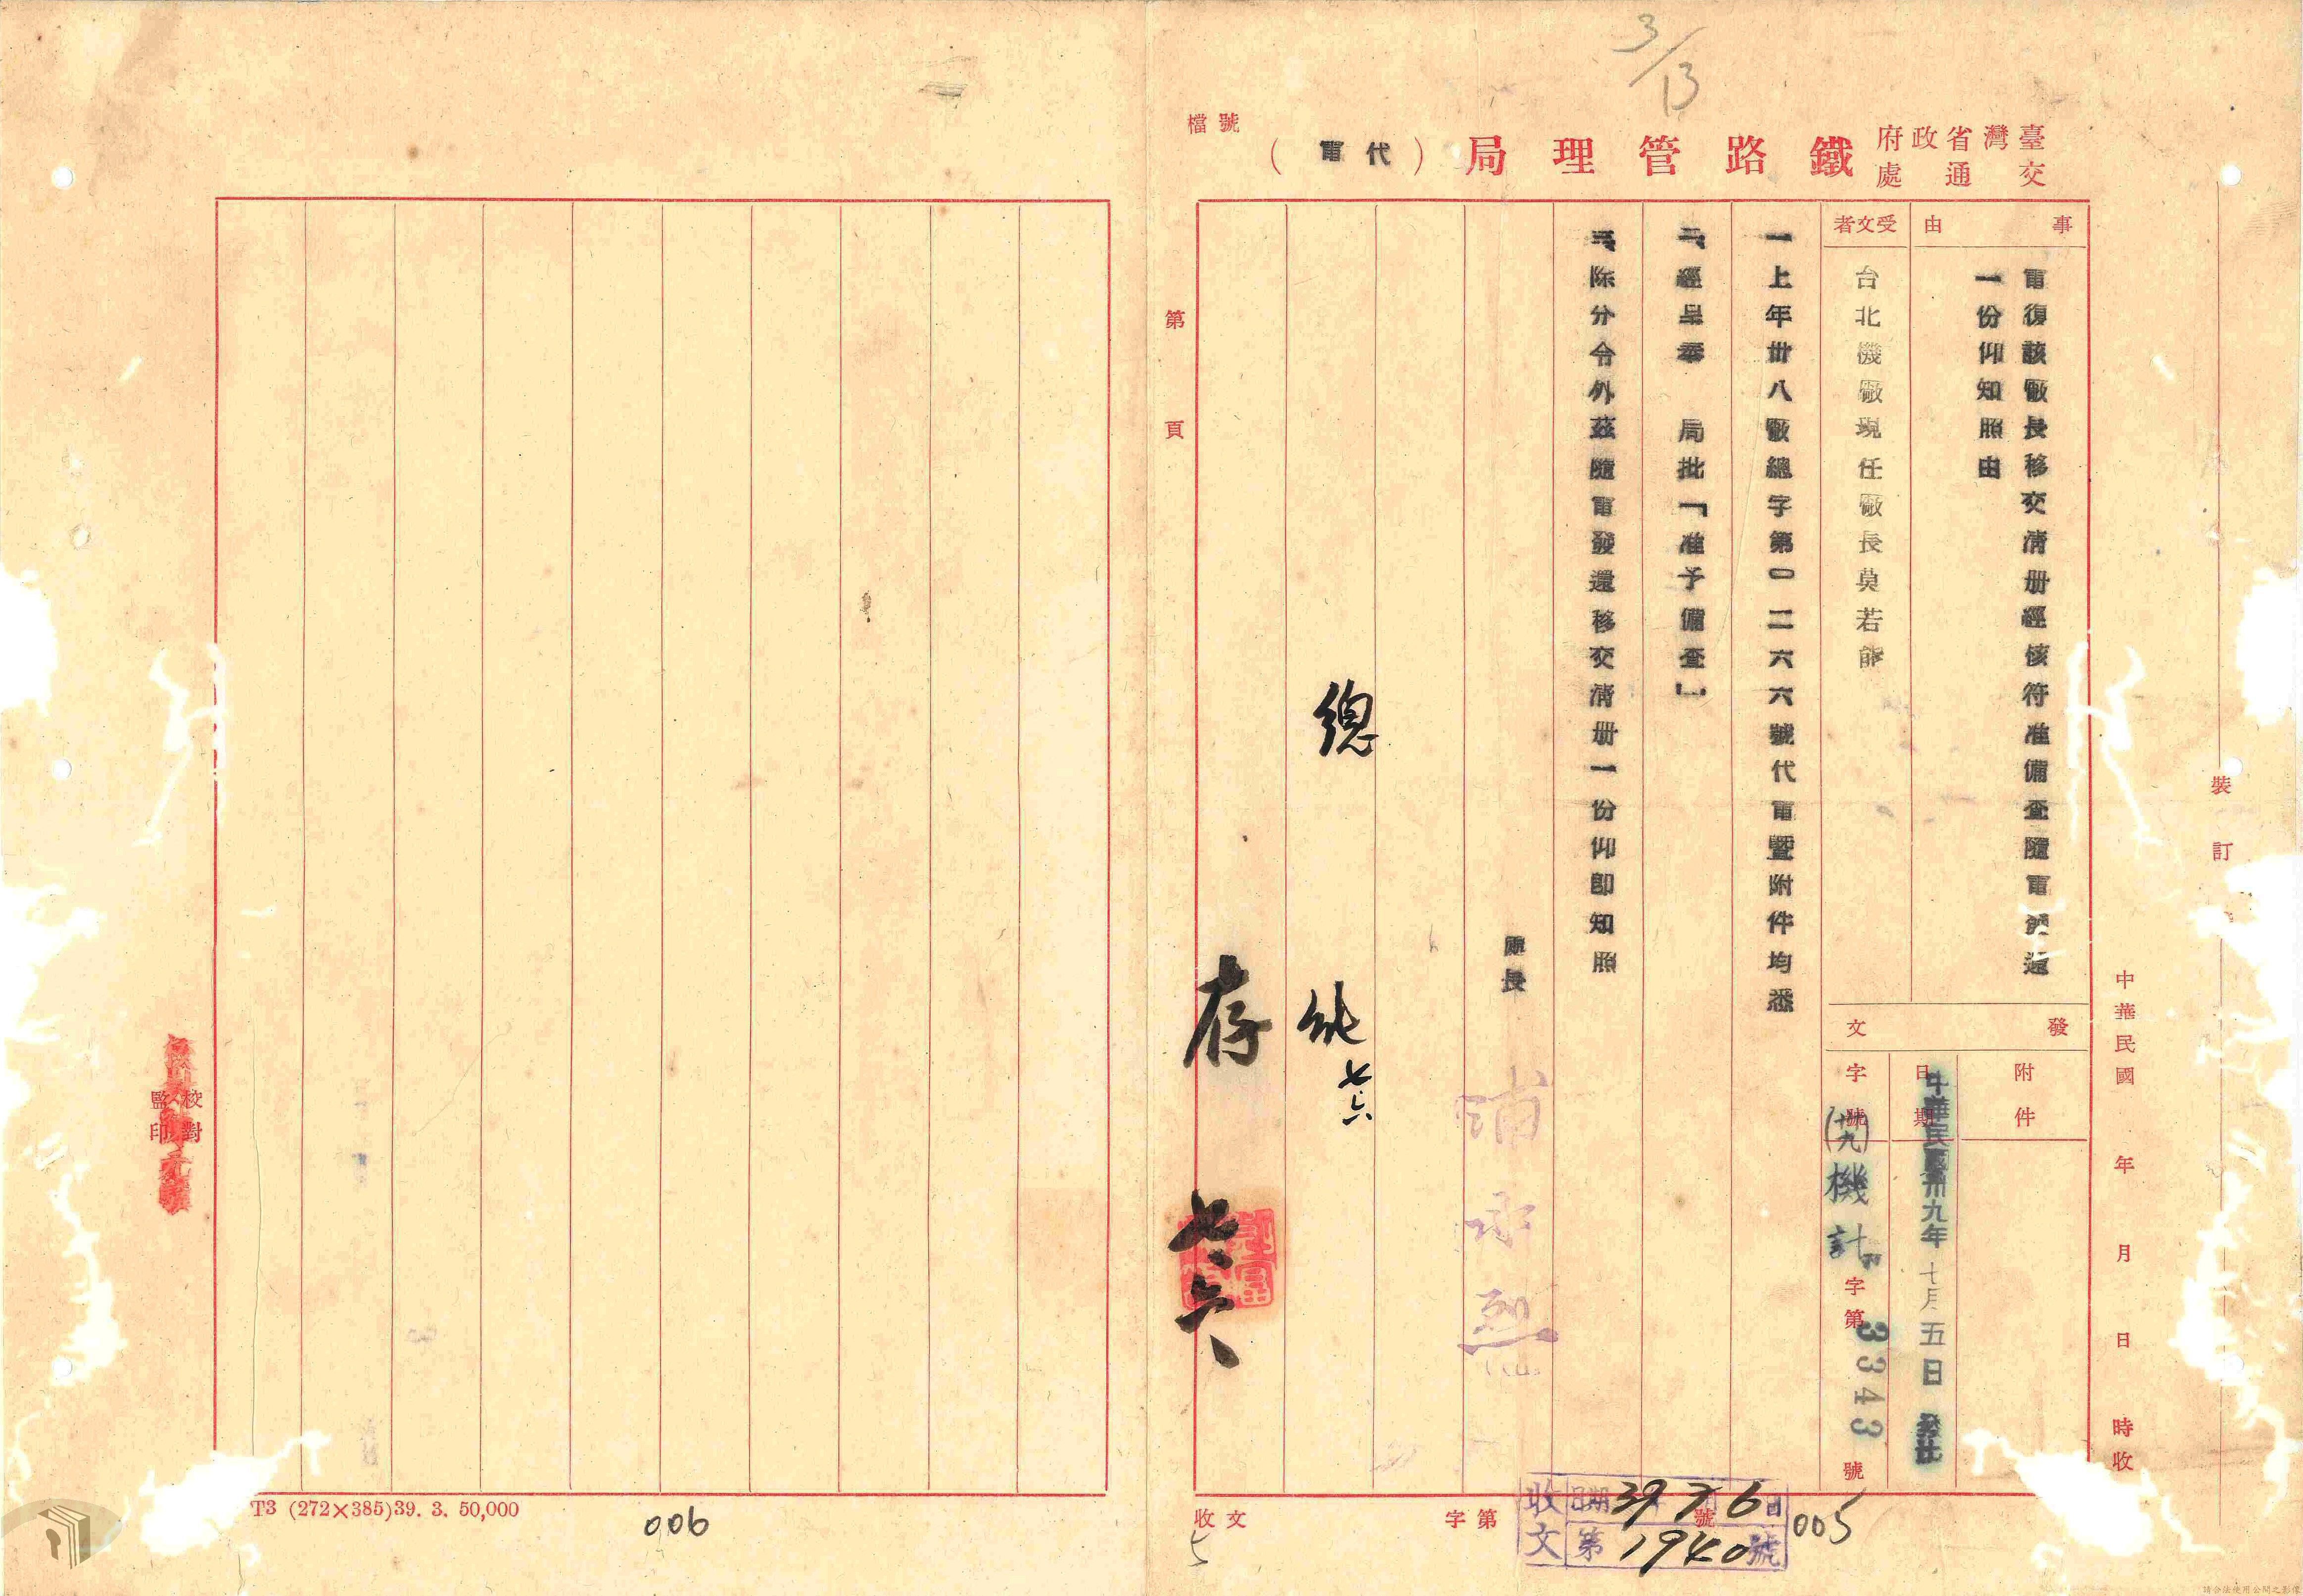 3/13
檔號
臺灣省政府
交通處
鐵路管理局（代電）
事由
電復該廠長移交清册經核符准備查隨電發還
一份仰知照由
受文者
台北機廠現任廠長莫若能
發文
附件
日期
中華民國卅九年七月五日發出
字號
(卅九)機計字第3343號
一上年卅八廠總字第〇二六六號代電暨附件均悉
二、經呈奉　局批「准予備查」
三、除分令外茲隨電發還移交清册一份仰卽知照
處長
總
能
七六
存
七六
中華民國　年　月　日　時收
裝
訂
第　頁
收文　字第　號
收文
日期 39 7 6 日
第 1940 號
005
5
校對
監印
T3 (272×385)39. 3. 50,000
006
請合法使用公開之影像